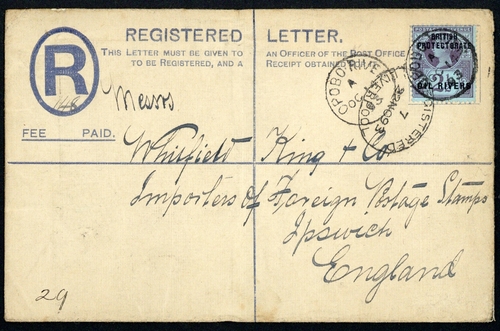 REGISTERED LETTER.
THIS LETTER MUST BE GIVEN TO AN OFFICER OF THE POST OFFICE
TO BE REGISTERED, AND A RECEIPT OBTAINED
R
FEE PAID.
BRITISH
PROTECTORATE
OIL RIVERS
OPOBO RIVER
REGISTERED
LIVERPOOL
Messrs
Whitfield King & Co
Importers of Foreign Postage Stamps
Ipswich
England
29